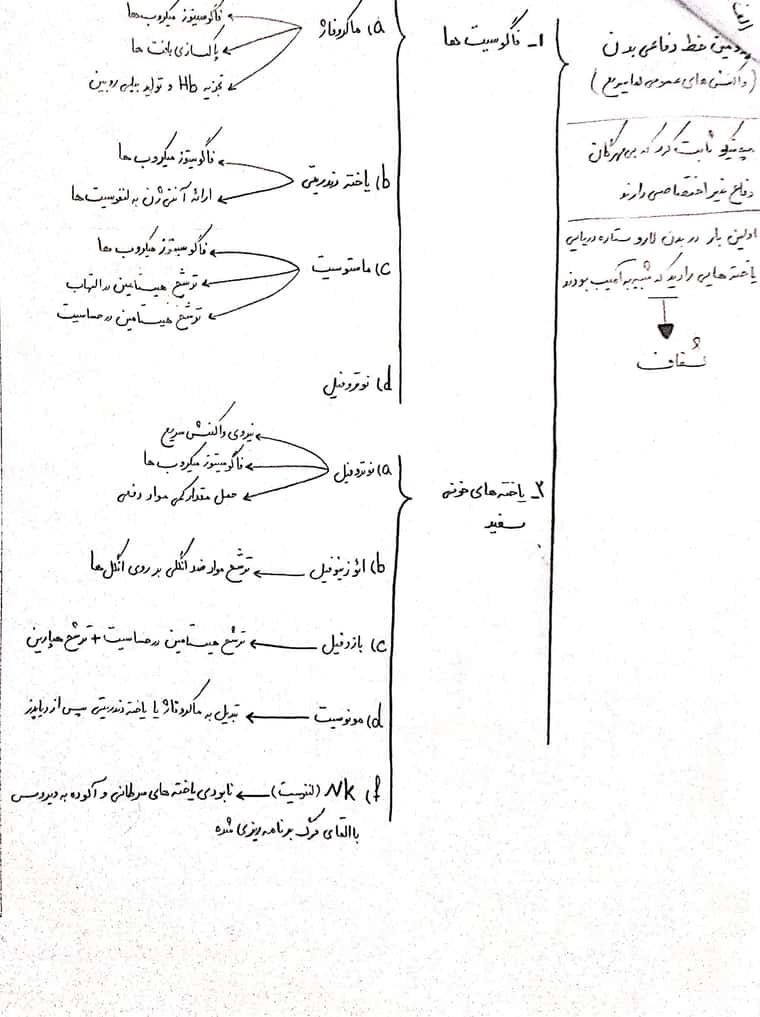 خط دفاعی بدن
(واکنش های عمومی اما سریع)
مچنیکو ثابت کرد که بی مهرگان
دفاع غیر اختصاصی دارند
اولین بار در بدن لارو ستاره دریایی
یاخته هایی را دید که شبیه به آمیب بودند
شفاف
۱- فاگوسیت ها
a) ماکروفاژ
فاگوسیتوز میکروب ها
پاکسازی بافت ها
تجزیه Hb و تولید بیلی روبین
b) یاخته دندریتی
فاگوسیتوز میکروب ها
ارائه آنتی ژن به لنفوسیت ها
c) ماستوسیت
فاگوسیتوز میکروب ها
ترشح هیستامین در التهاب
ترشح هیستامین در حساسیت
d) نوتروفیل
۲- یاخته های خونی
سفید
a) نوتروفیل
نیروی واکنش سریع
فاگوسیتوز میکروب ها
حمل مقدار کمی مواد دفاعی
b) ائوزینوفیل ← ترشح مواد ضد انگلی بر روی انگل ها
c) بازوفیل ← ترشح هیستامین در حساسیت + ترشح هپارین
d) مونوسیت ← تبدیل به ماکروفاژ یا یاخته دندریتی پس از دیاپدز
f) NK (لنفوسیت) ← نابودی یاخته های سرطانی و آلوده به ویروس
با القای مرگ برنامه ریزی شده